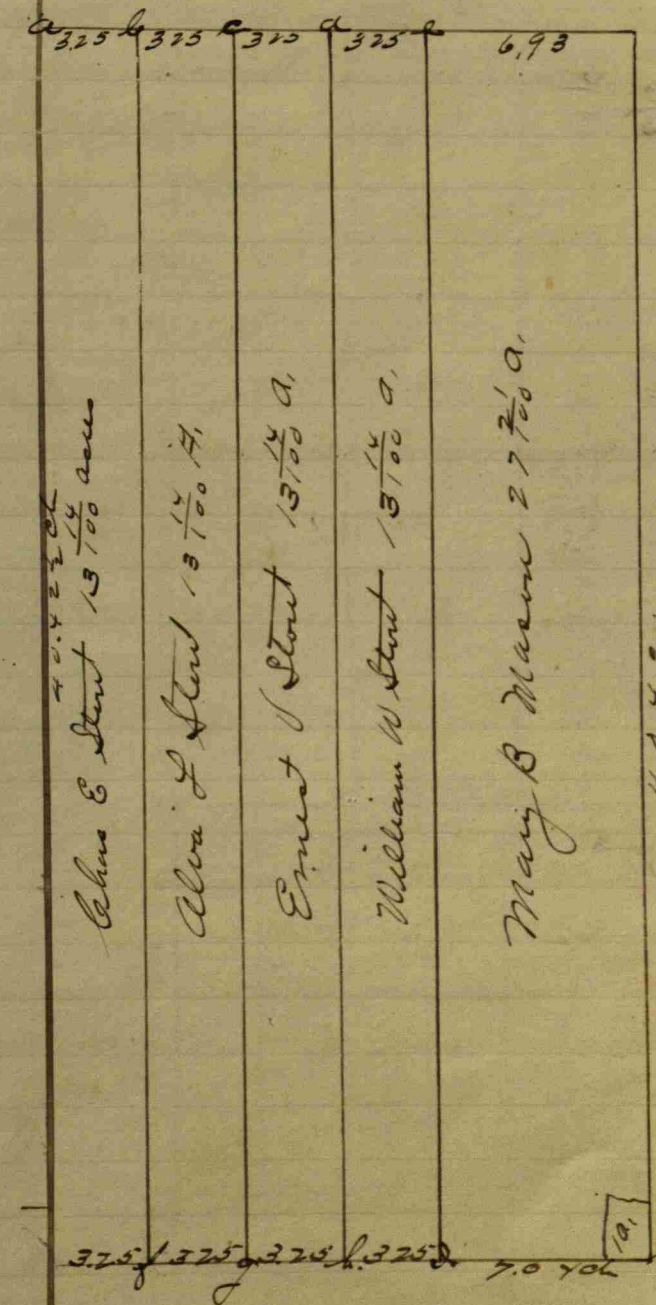 a 3.25 b 3.25 c 3.25 d 3.25 e 6.93
40.42½ ch
Chas E Stout 13 14/100 acres
Alva L Stout 13 14/100 A,
Ernest V Stout 13 14/100 a,
William W Stout 13 14/100 a,
Mary B Mason 27 21/100 a,
1a,
3.25 f 3.25 g 3.25 h 3.25 7.0 ch